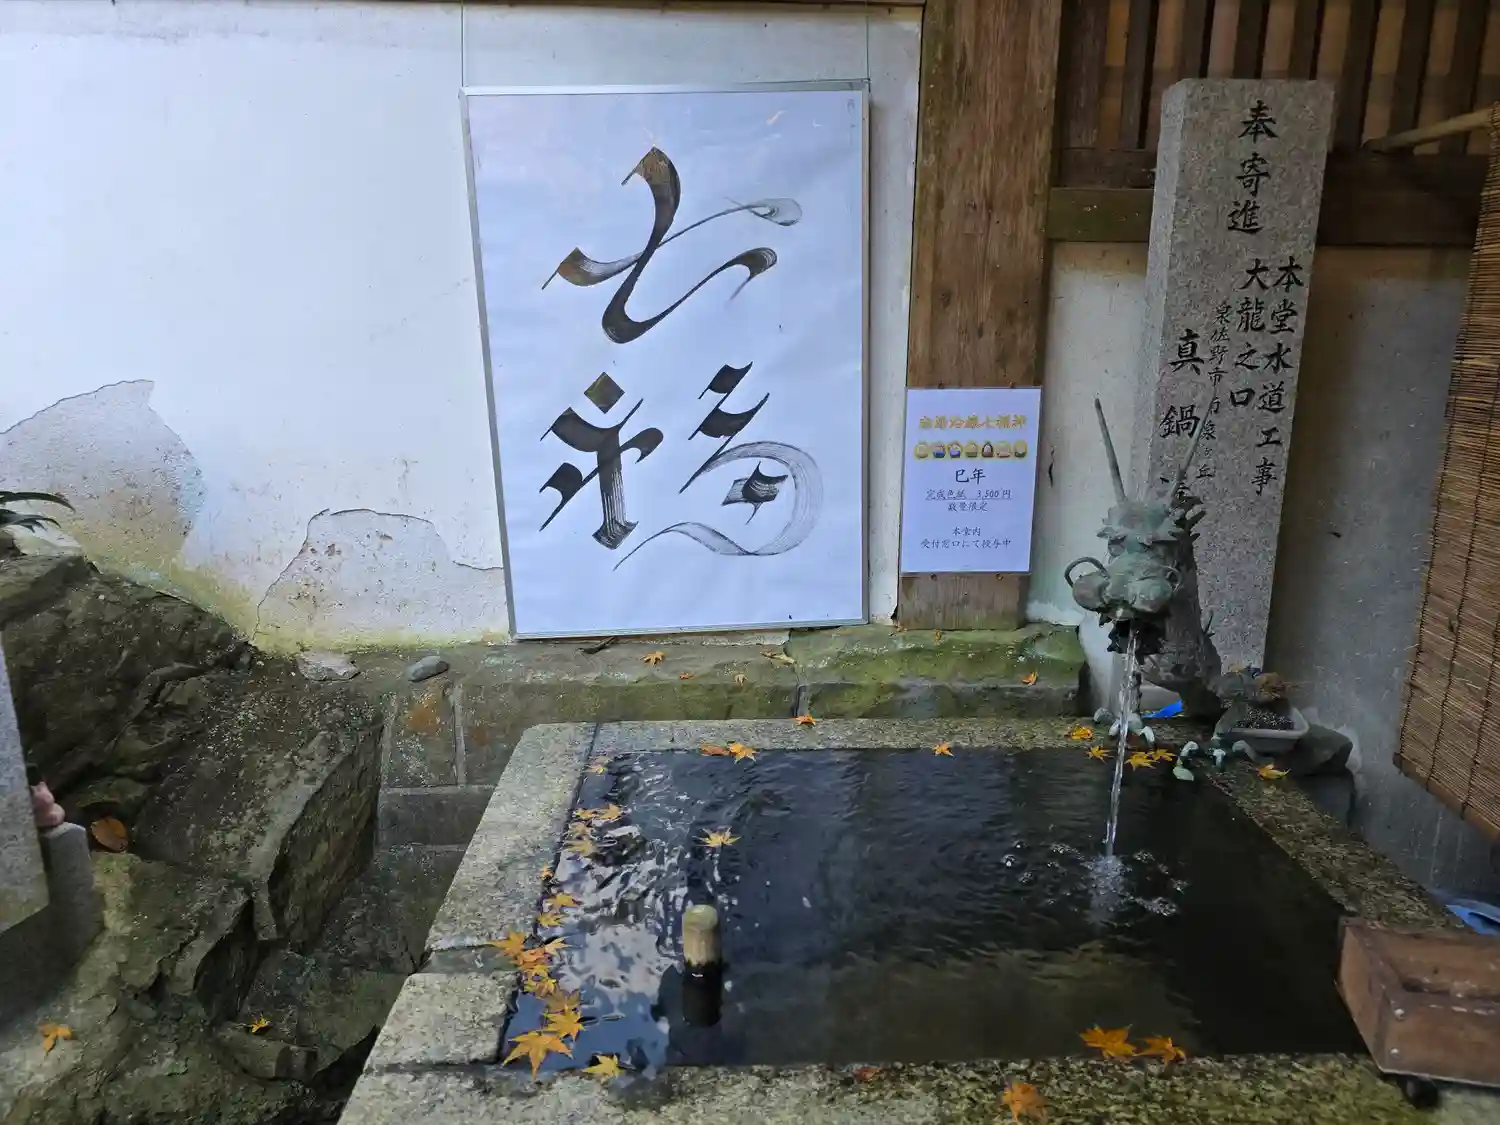 七
福
南海沿線七福神
巳年
完成色紙 3,500円
数量限定
本堂内
受付窓口にて授与中
奉寄進
本堂水道工事
大龍之口
泉佐野市
真鍋